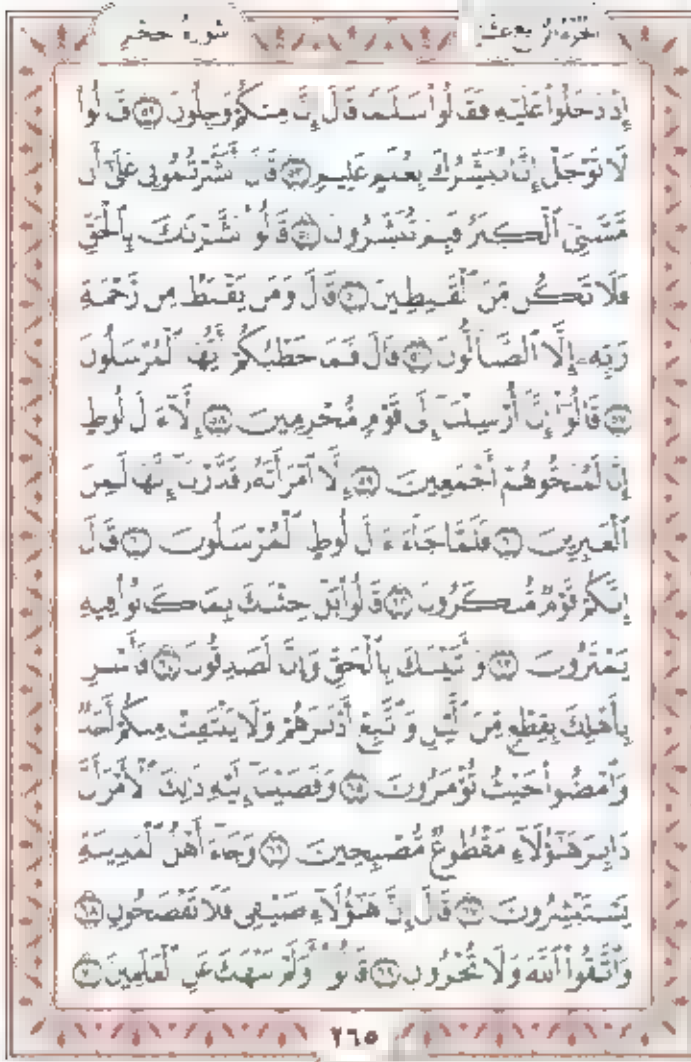 الجزء الرابع عشر
سورة الحجر
إِذْ دَخَلُوا۟ عَلَيْهِ فَقَالُوا۟ سَلَـٰمًا قَالَ إِنَّا مِنكُمْ وَجِلُونَ ﴿٥٢﴾ قَالُوا۟
لَا تَوْجَلْ إِنَّا نُبَشِّرُكَ بِغُلَـٰمٍ عَلِيمٍ ﴿٥٣﴾ قَالَ أَبَشَّرْتُمُونِى عَلَىٰٓ أَن
مَّسَّنِىَ ٱلْكِبَرُ فَبِمَ تُبَشِّرُونَ ﴿٥٤﴾ قَالُوا۟ بَشَّرْنَـٰكَ بِٱلْحَقِّ
فَلَا تَكُن مِّنَ ٱلْقَـٰنِطِينَ ﴿٥٥﴾ قَالَ وَمَن يَقْنَطُ مِن رَّحْمَةِ
رَبِّهِۦٓ إِلَّا ٱلضَّآلُّونَ ﴿٥٦﴾ قَالَ فَمَا خَطْبُكُمْ أَيُّهَا ٱلْمُرْسَلُونَ
﴿٥٧﴾ قَالُوٓا۟ إِنَّآ أُرْسِلْنَآ إِلَىٰ قَوْمٍ مُّجْرِمِينَ ﴿٥٨﴾ إِلَّآ ءَالَ لُوطٍ
إِنَّا لَمُنَجُّوهُمْ أَجْمَعِينَ ﴿٥٩﴾ إِلَّا ٱمْرَأَتَهُۥ قَدَّرْنَآ إِنَّهَا لَمِنَ
ٱلْغَـٰبِرِينَ ﴿٦٠﴾ فَلَمَّا جَآءَ ءَالَ لُوطٍ ٱلْمُرْسَلُونَ ﴿٦١﴾ قَالَ
إِنَّكُمْ قَوْمٌ مُّنكَرُونَ ﴿٦٢﴾ قَالُوا۟ بَلْ جِئْنَـٰكَ بِمَا كَانُوا۟ فِيهِ
يَمْتَرُونَ ﴿٦٣﴾ وَأَتَيْنَـٰكَ بِٱلْحَقِّ وَإِنَّا لَصَـٰدِقُونَ ﴿٦٤﴾ فَأَسْرِ
بِأَهْلِكَ بِقِطْعٍ مِّنَ ٱلَّيْلِ وَٱتَّبِعْ أَدْبَـٰرَهُمْ وَلَا يَلْتَفِتْ مِنكُمْ أَحَدٌ
وَٱمْضُوا۟ حَيْثُ تُؤْمَرُونَ ﴿٦٥﴾ وَقَضَيْنَآ إِلَيْهِ ذَٰلِكَ ٱلْأَمْرَ أَنَّ
دَابِرَ هَـٰٓؤُلَآءِ مَقْطُوعٌ مُّصْبِحِينَ ﴿٦٦﴾ وَجَآءَ أَهْلُ ٱلْمَدِينَةِ
يَسْتَبْشِرُونَ ﴿٦٧﴾ قَالَ إِنَّ هَـٰٓؤُلَآءِ ضَيْفِى فَلَا تَفْضَحُونِ ﴿٦٨﴾
وَٱتَّقُوا۟ ٱللَّهَ وَلَا تُخْزُونِ ﴿٦٩﴾ قَالُوٓا۟ أَوَلَمْ نَنْهَكَ عَنِ ٱلْعَـٰلَمِينَ ﴿٧٠﴾
٢٦٥